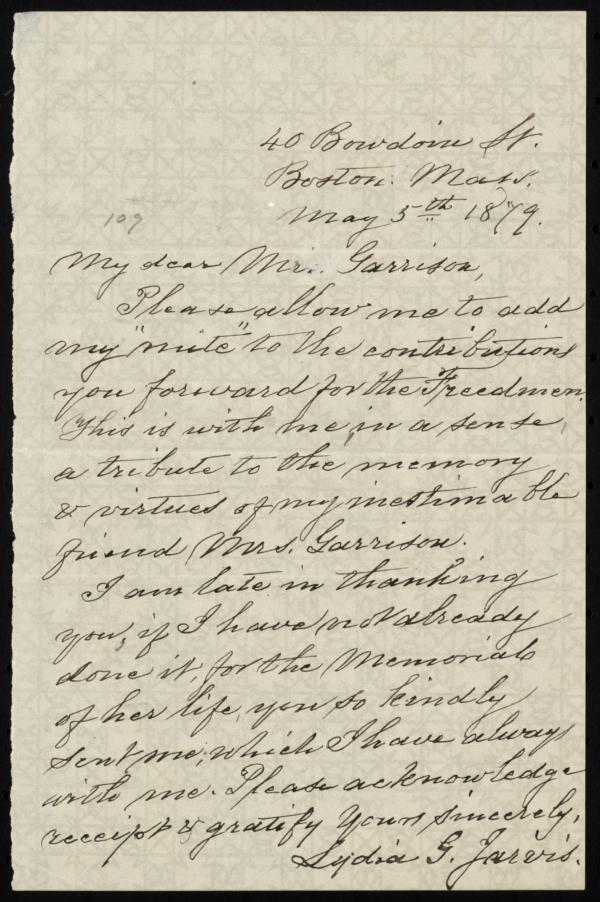 40 Bowdoin St.
Boston. Mass.
109
May 5th 1879.
My dear Mr. Garrison,
Please allow me to add
my "mite" to the contributions
you forward for the Freedmen.
This is with me, in a sense,
a tribute to the memory
& virtues of my inestimable
friend Mrs. Garrison.
I am late in thanking
you, if I have not already
done it, for the Memorial
of her life, you so kindly
sent me, which I have always
with me. Please acknowledge
receipt & gratify Yours sincerely,
Lydia G. Jarvis.